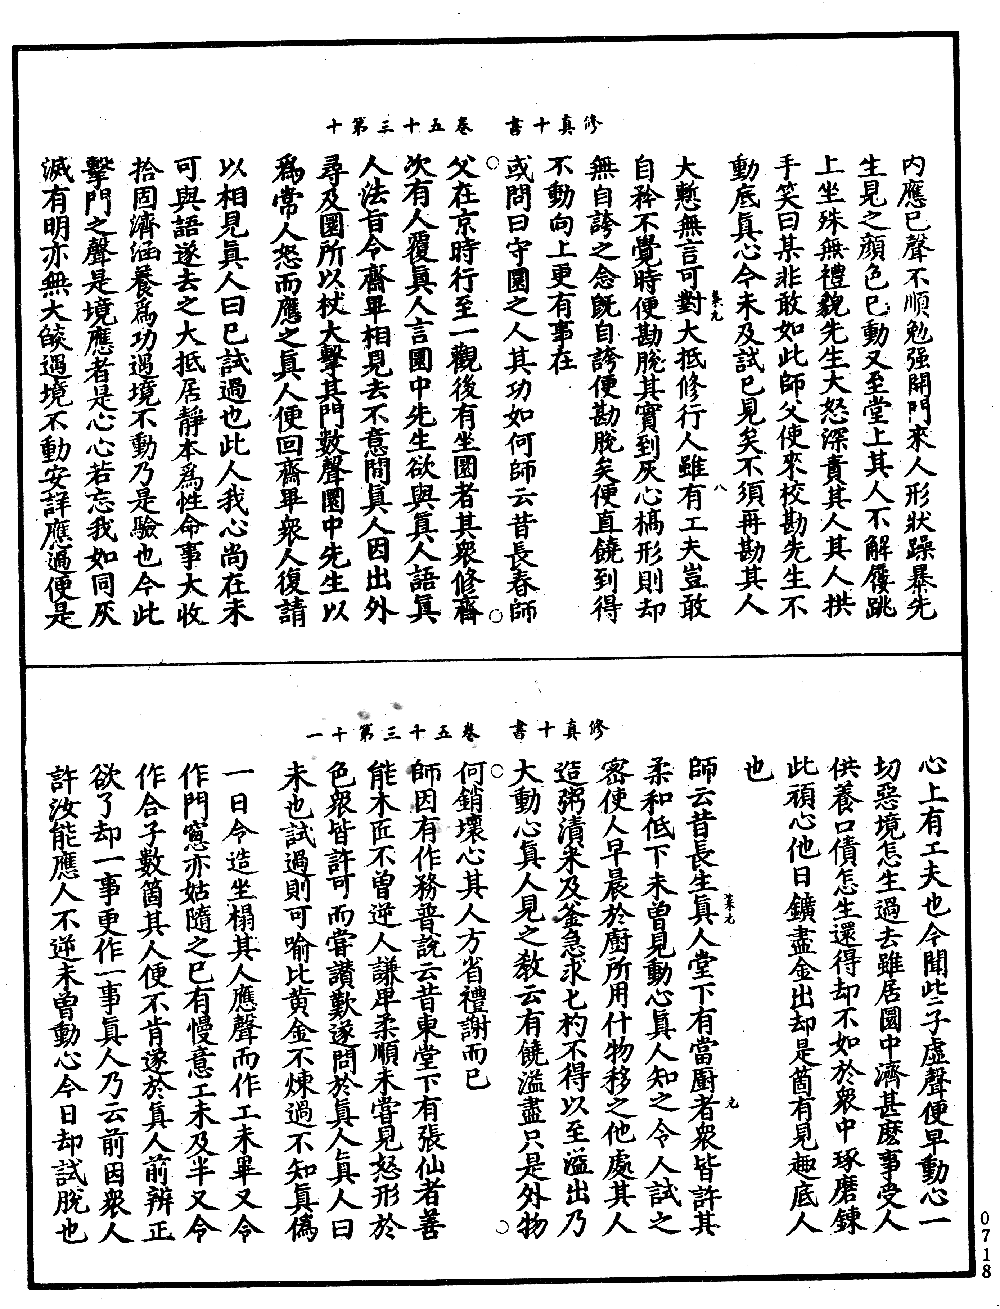 修真十書　卷五十三第十
內應已聲不順勉强開門來人形狀躁暴先
生見之顔色已動又至堂上其人不解屨跳
上坐殊無禮貌先生大怒深責其人其人拱
手笑曰某非敢如此師父使來校勘先生不
動底眞心今未及試已見矣不須再勘其人
大慙無言可對大抵修行人雖有工夫豈敢
自矜不覺時便勘脫其實到灰心槁形則却
無自誇之念旣自誇便勘脫矣便直饒到得
不動向上更有事在
或問曰守圜之人其功如何師云昔長春師
父在京時行至一觀後有坐圜者其衆修齋
次有人覆眞人言圜中先生欲與眞人語眞
人法旨令齋畢相見去不意間眞人因出外
尋及圜所以杖大擊其門數聲圜中先生以
爲常人怒而應之眞人便回齋畢衆人復請
以相見眞人曰已試過也此人我心尚在未
可與語遂去之大抵居靜本爲性命事大收
拾固濟涵養爲功過境不動乃是驗也今此
擊門之聲是境應者是心心若忘我如同灰
滅有明亦無大皎遇境不動安詳應過便是
修真十書　卷五十三第十一
心上有工夫也今聞此二子虛聲便早動心一
切惡境怎生過去雖居圜中濟甚麽事受人
供養口債怎生還得却不如於衆中琢磨鍊
此頑心他日鑛盡金出却是箇有見趣底人
也
師云昔長生眞人堂下有當廚者衆皆許其
柔和低下未曾見動心眞人知之令人試之
密使人早晨於廚所用什物移之他處其人
造粥漬米及釜急求七杓不得以至溢出乃
大動心眞人見之敎云有饒溢盡只是外物
何銷壞心其人方省禮謝而已
師因有作務普說云昔東堂下有張仙者善
能木匠不曾逆人謙卑柔順未嘗見怒形於
色衆皆許可而嘗讚歎遂問於眞人眞人曰
未也試過則可喻比黄金不煉過不知眞僞
一日令造坐榻其人應聲而作工未畢又令
作門窻亦姑隨之已有慢意工未及半又令
作合子數箇其人便不肯遂於眞人前辨正
欲了却一事更作一事眞人乃云前因衆人
許汝能應人不逆未曾動心今日却試脫也
0718